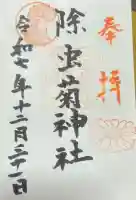 奉拝
除虫菊神社
令和七年十二月三十一日